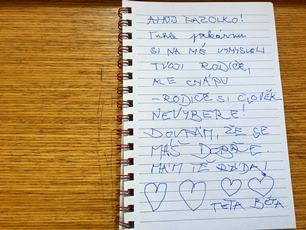 AHOJ FAZOLKO!
SI NA MĚ VYMYSLELI
TVOJI RODIČE,
ALE CHÁPU
– RODIČE SI ČLOVĚK
NEVYBERE!
DOUFÁM, ŽE SE
MÁŠ DOBŘE.
MÁM TĚ RÁDA!
TETA BĚTA